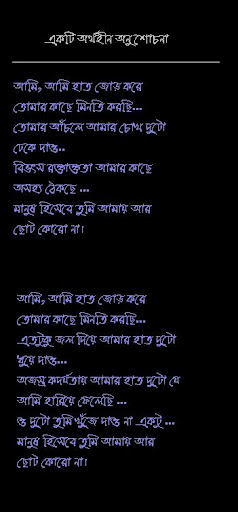 একটি অর্থহীন অনুশোচনা
আমি, আমি হাত জোড় করে
তোমার কাছে মিনতি করছি...
তোমার আঁচলে আমার চোখ দুটো
ঢেকে দাও..
বিভৎস রক্তাক্ততা আমার কাছে
অসহ্য ঠেকছে ...
মানুষ হিসেবে তুমি আমায় আর
ছোট কোরো না।
আমি, আমি হাত জোড় করে
তোমার কাছে মিনতি করছি...
এতটুকু জল দিয়ে আমার হাত দুটো
ধুয়ে দাও...
অজস্র কদর্যতায় আমার হাত দুটো যে
আমি হারিয়ে ফেলেছি ...
ও দুটো তুমি খুঁজে দাও না একটু ...
মানুষ হিসেবে তুমি আমায় আর
ছোট কোরো না।